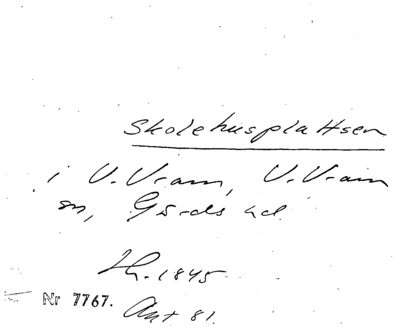 Skolehusplattsen
i V. Vram, V. Vram
sn, Gärds hd.
Th. 1845
Nr 7767. Akt 81.